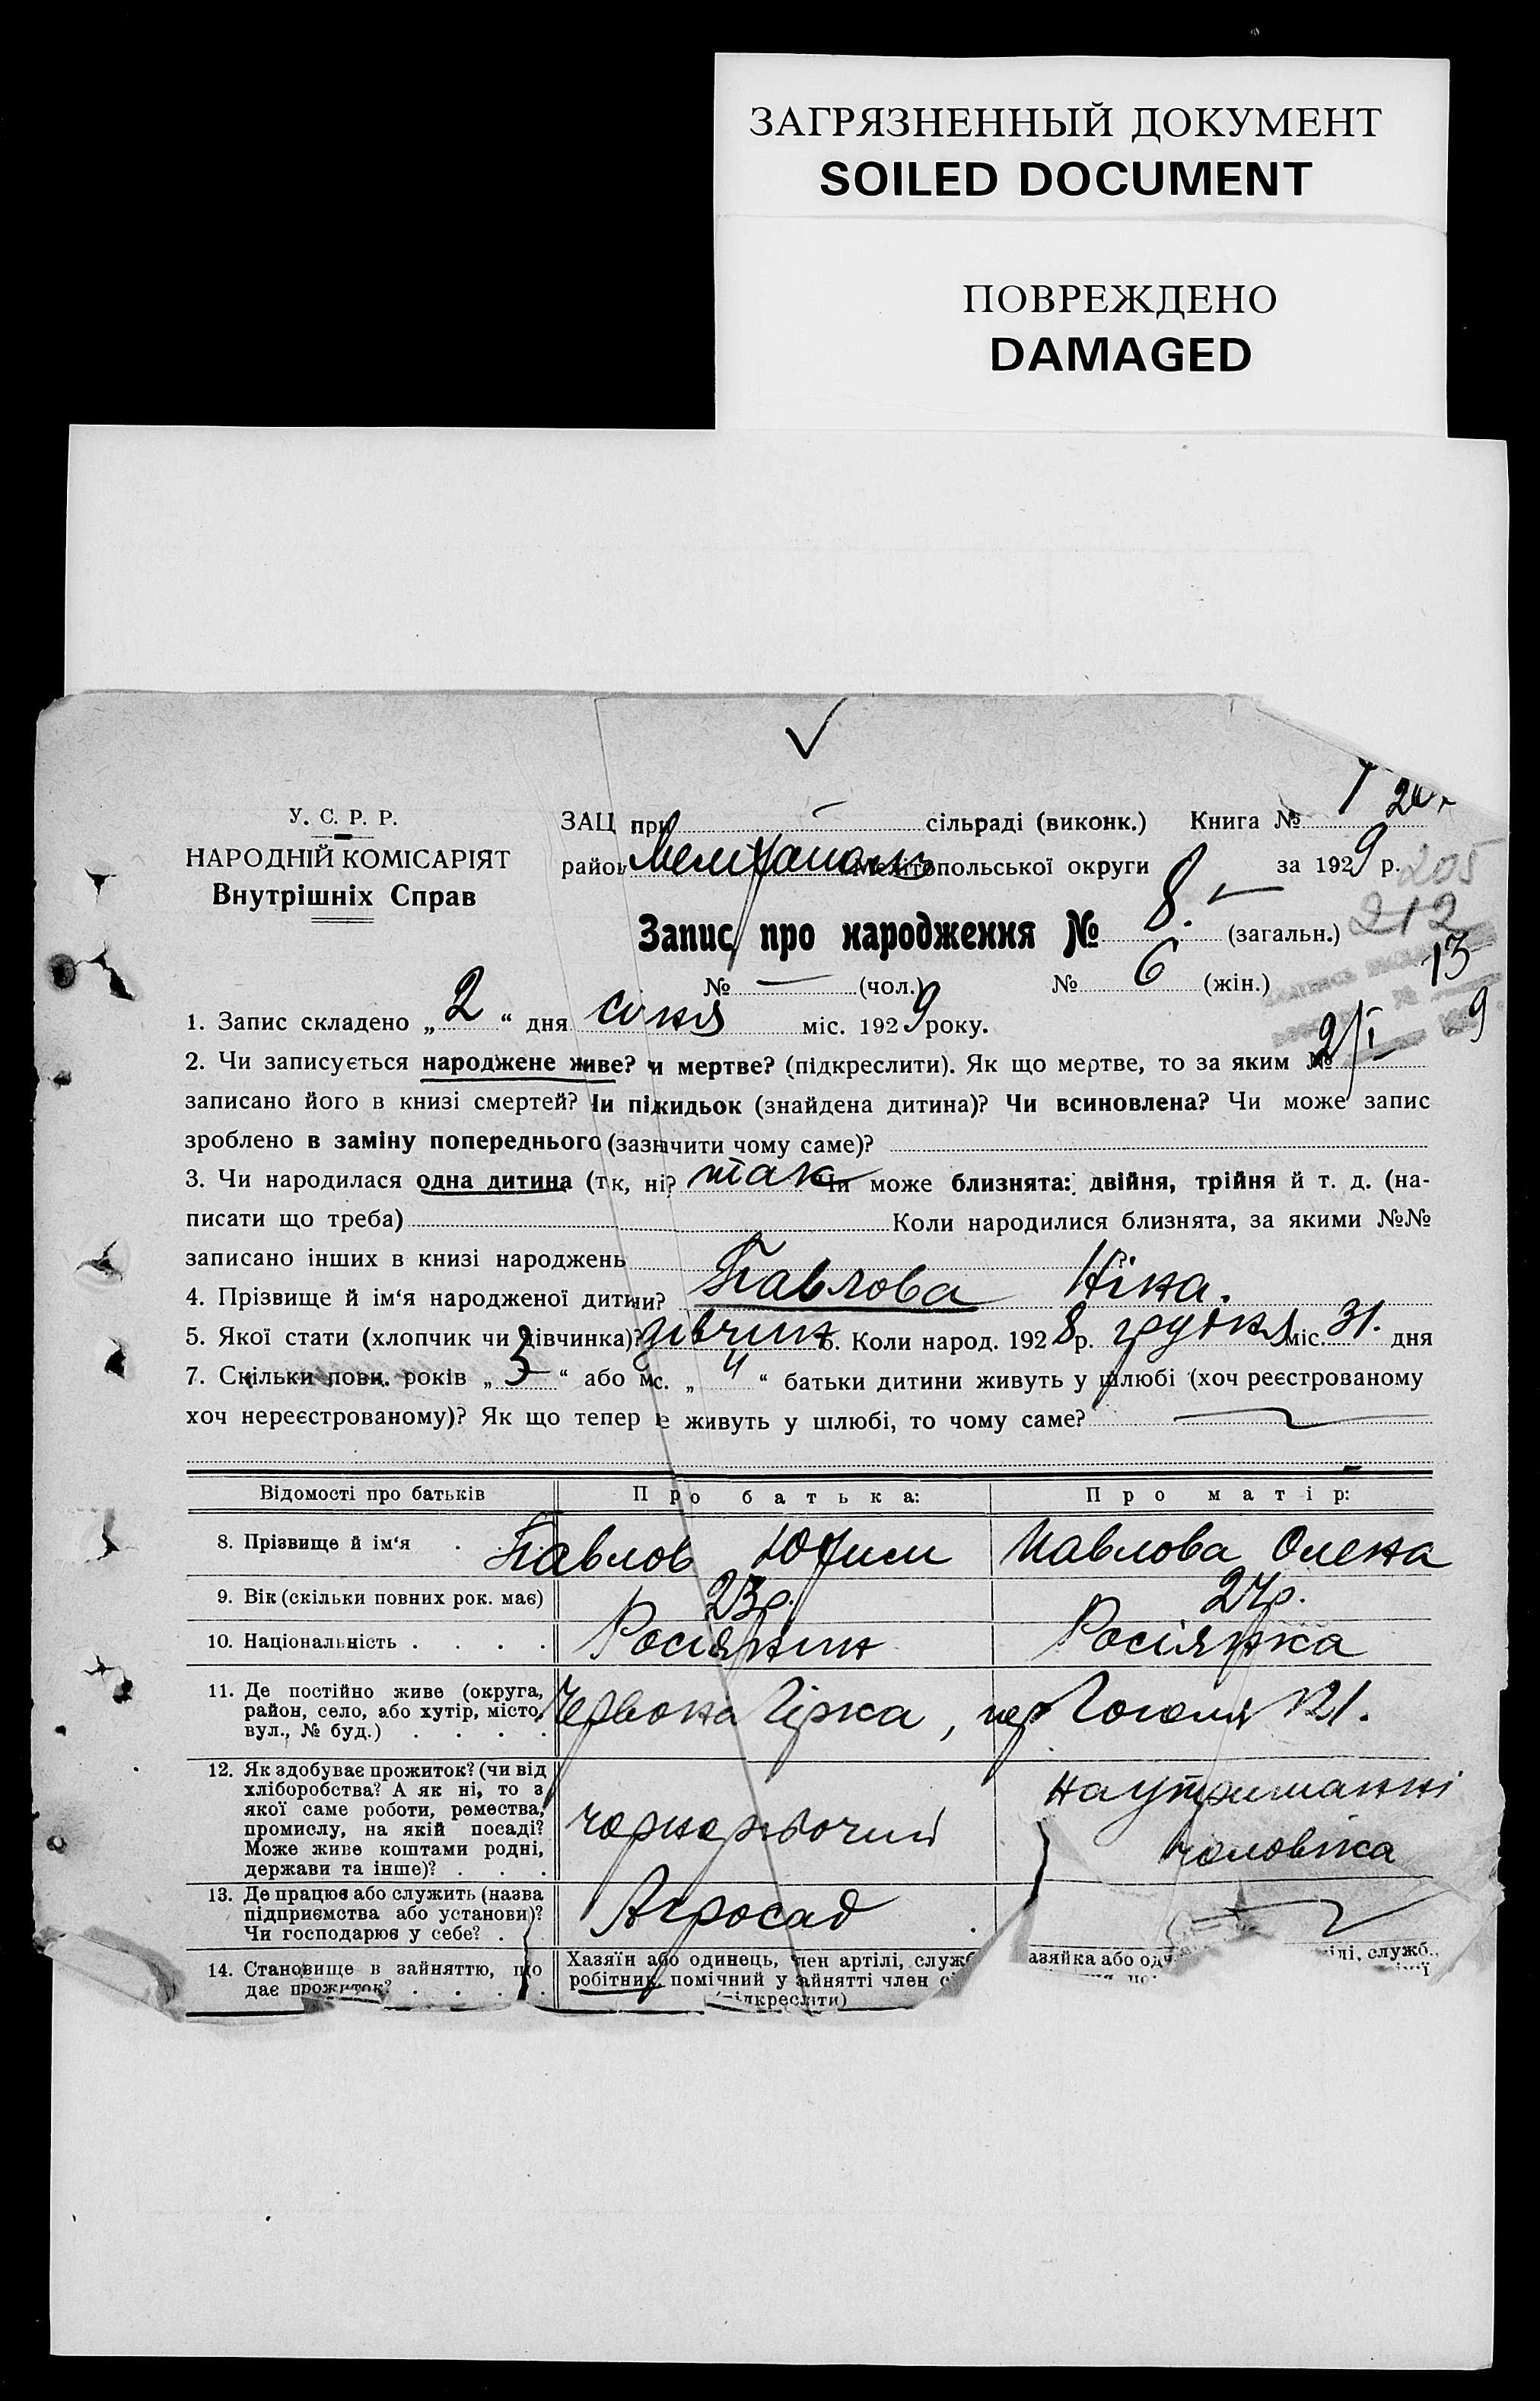 ЗАГРЯЗНЕННЫЙ ДОКУМЕНТ
SOILED DOCUMENT
ПОВРЕЖДЕНО
DAMAGED
У. С. Р. Р.
НАРОДНІЙ КОМІСАРІЯТ
Внутрішніх Справ
ЗАЦ при сільраді (виконк.) Книга № 1
район Мелітополь Мелітопольської округи за 1929 р. 205
Запис про народження № 8. (загальн.) 212
№ — (чол.) № 6 (жін.) 13
1. Запис складено „2“ дня січня міс. 1929 року. 9
2. Чи записується народжене живе? чи мертве? (підкреслити). Як що мертве, то за яким № 2/I
записано його в книзі смертей? Чи підкидьок (знайдена дитина)? Чи всиновлена? Чи може запис
зроблено в заміну попереднього (зазначити чому саме)?
3. Чи народилася одна дитина (так, ні? так Чи може близнята: двійня, трійня й т. д. (на-
писати що треба) Коли народилися близнята, за якими №№
записано інших в книзі народжень
4. Прізвище й ім‘я народженої дитини? Павлова Ніна.
5. Якої стати (хлопчик чи дівчинка)? дівчин 6. Коли народ. 1928 р. грудня міс. 31. дня
7. Скільки повн. років „3“ або міс. „ч“ батьки дитини живуть у шлюбі (хоч реєстрованому
хоч нереєстрованому)? Як що тепер не живуть у шлюбі, то чому саме? —
Відомості про батьків Про батька: Про матір:
8. Прізвище й ім‘я Павлов Юхим Павлова Олена
9. Вік (скільки повних рок. має) 23р. 24р.
10. Національність Росіянин Росіянка
11. Де постійно живе (округа,
район, село, або хутір, місто,
вул., № буд.) Червона Гірка, пер Гоголя 121.
12. Як здобуває прожиток? (чи від
хліборобства? А як ні, то з
якої саме роботи, ремества,
промислу, на якій посаді?
Може живе коштами родні,
держави та інше)? чорноробочий на утриманні
чоловіка
13. Де працює або служить (назва
підприємства або установи)?
Чи господарює у себе? Агросад —
14. Становище в зайняттю, що
дає прожиток?
Хазяїн або одинець, член артілі, служб
робітник, помічний у зайнятті член
(підкреслити)
азяйка або оди ілі, служб.,